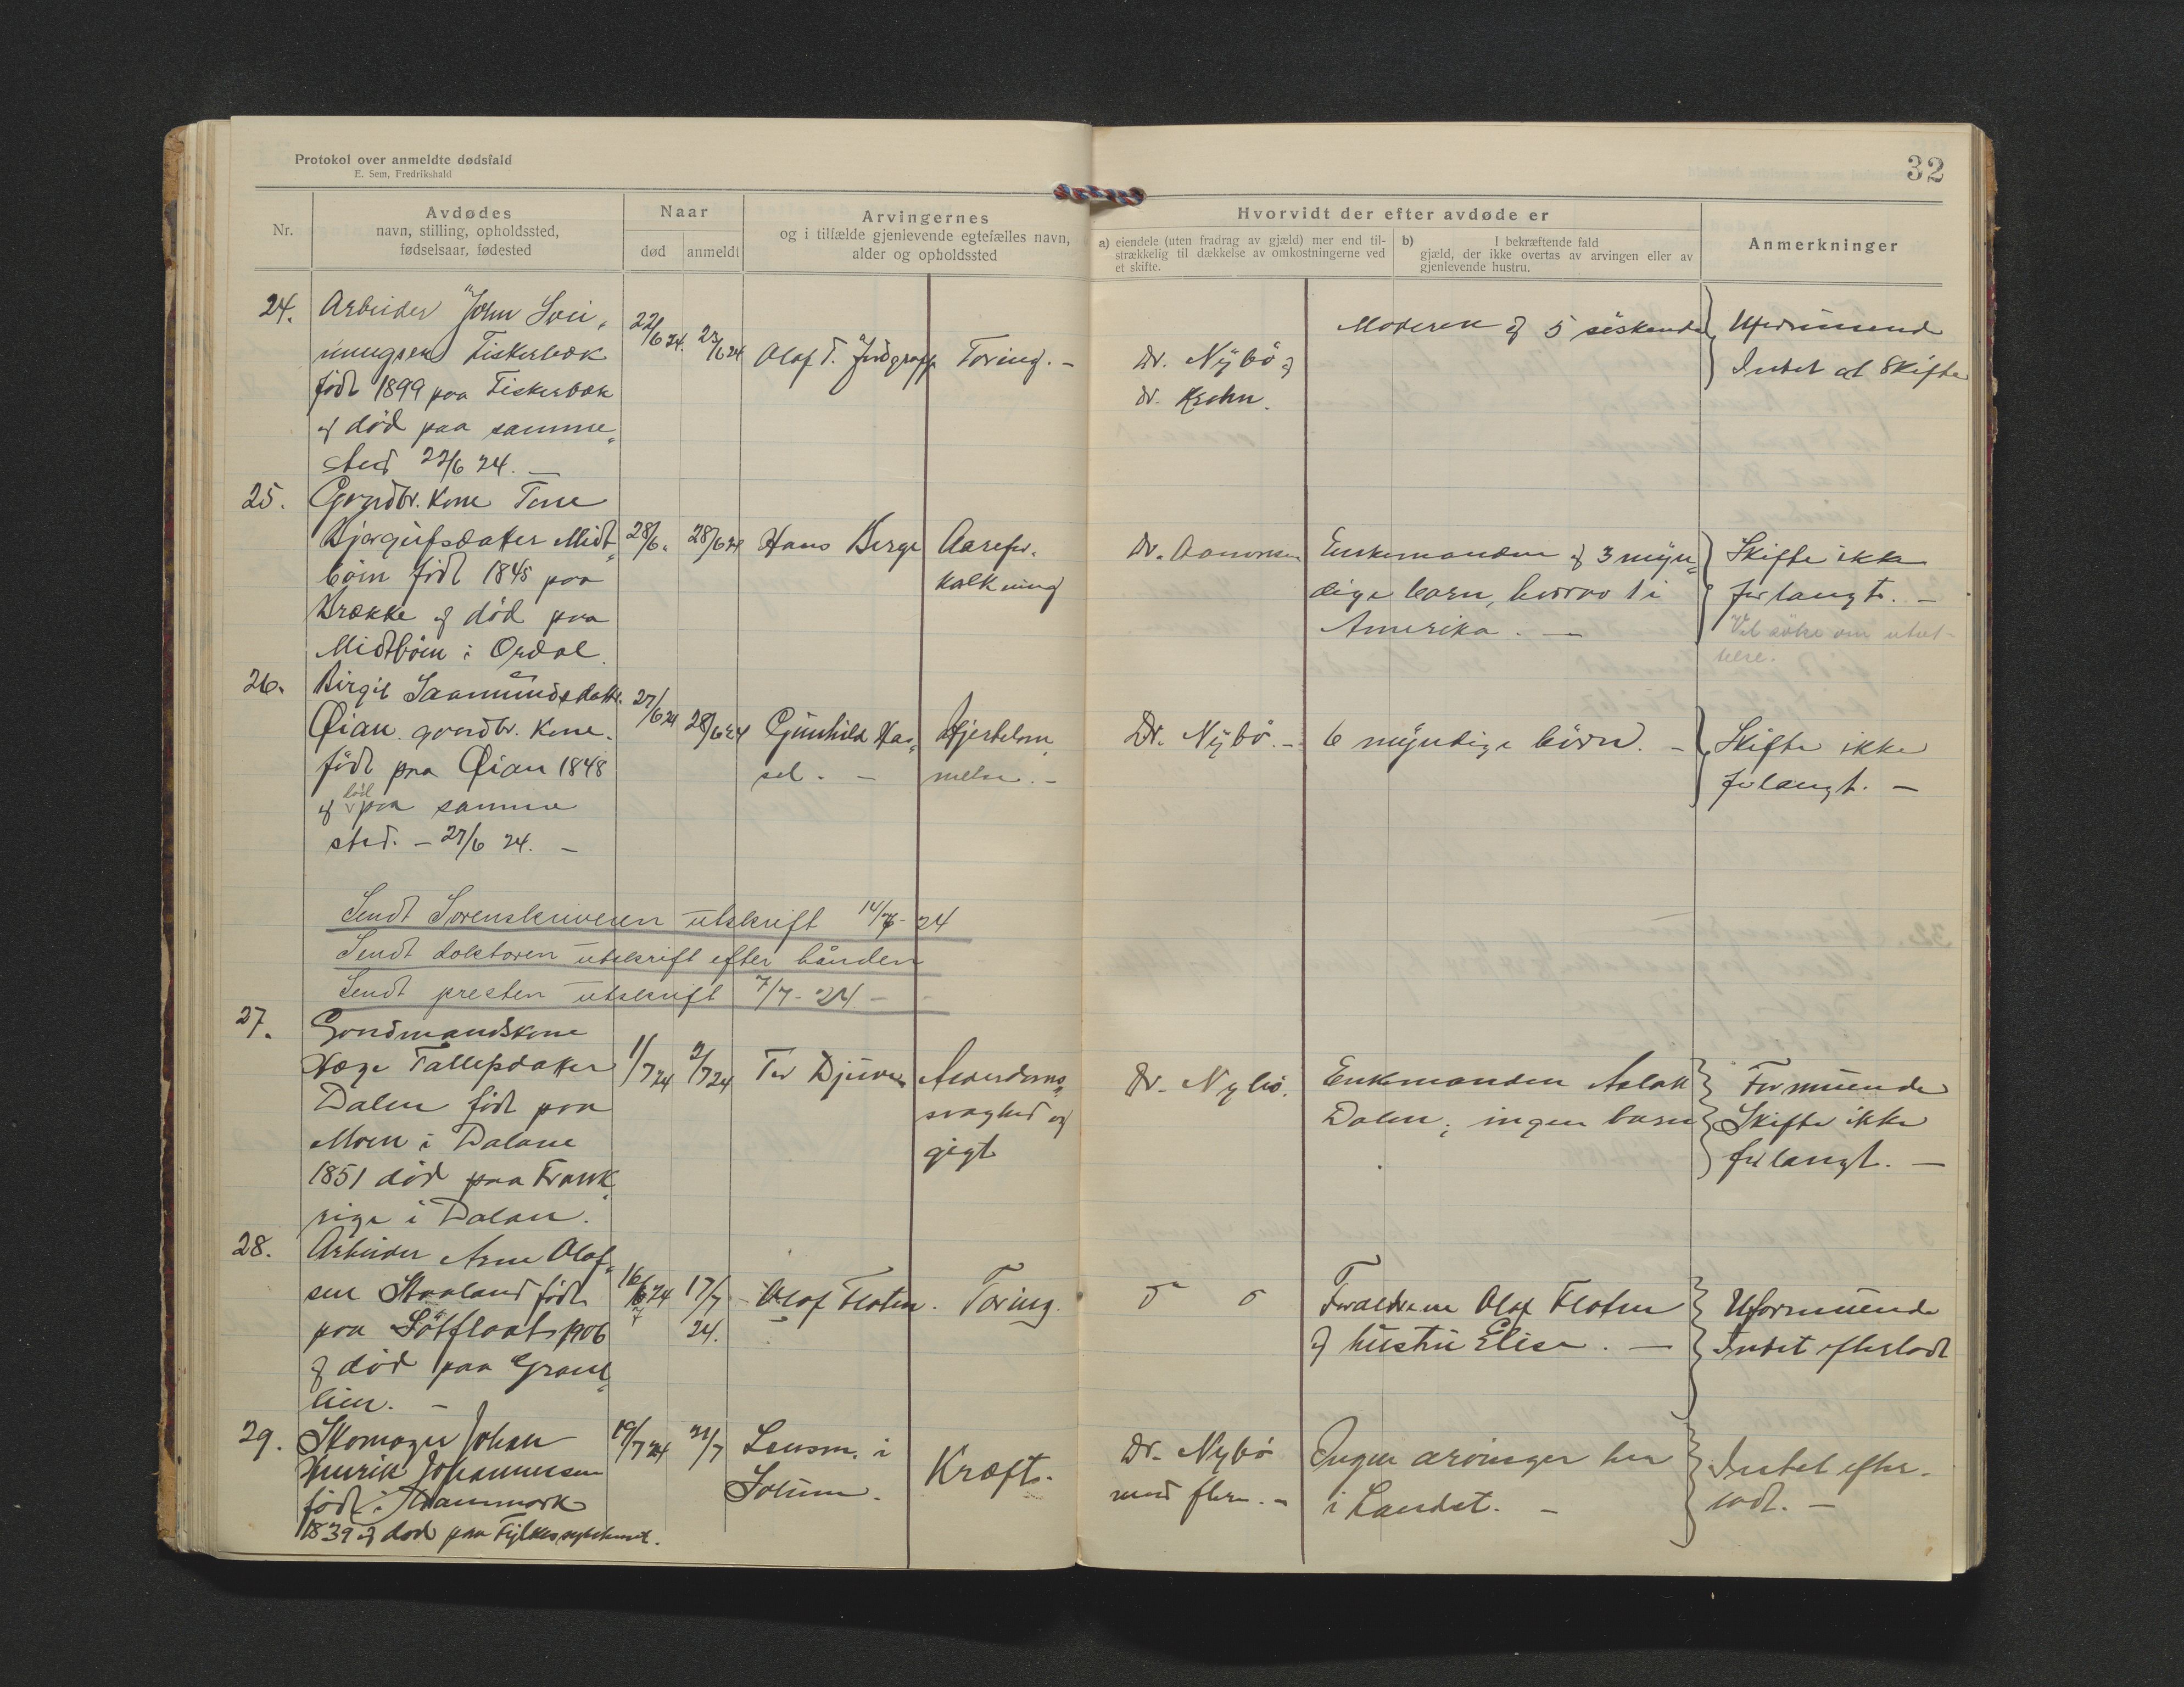 Protokol over anmeldte dødsfald
E. Sem, Fredrikshald
32
Nr.
Avdødes
navn, stilling, opholdssted,
fødselsaar, fødested
Naar
død
anmeldt
Arvingernes
og i tilfælde gjenlevende egtefælles navn,
alder og opholdssted
Hvorvidt der efter avdøde er
a) eiendele (uten fradrag av gjæld) mer end til-
strækkelig til dækkelse av omkostningerne ved
et skifte.
b) I bekræftende fald
gjæld, der ikke overtas av arvingen eller av
gjenlevende hustru.
Anmerkninger
24.
Arbeider John Svei-
nungsen Fiskerbæk
født 1899 paa Fiskerbæk
og död paa samme
sted 22/6 24. -
22/6 24.
23/6 24
Olaf T.
Tæring. -
Dr. Nybö og
dr. Krohn.
Moderen og 5 söskende
Uformuend
Intet at Skifte
25.
Gardbr. Kone Tone
Bjørgufsdatter Midt
böin född 1845 paa
Brække og död paa
Midtböin i Ordal.
28/6.
28/6 24
Hans Berge
Aarefor.
kalkning
Dr. Aanonsen
Enkemanden og 3 myn-
dige barn, hvorav 1 i
Amerika. -
Skifte ikke
forlangt. -
Vil söke om utset-
telse.
26.
Birgit Saamundsdatter
Øian. gardbr. Kone.
född paa Øian 1848
og död paa samme
sted. - 27/6 24. -
27/6 24
28/6 24
Gunhild Has-
sel. -
Hjertelam
melse. -
Dr. Nybö. -
6 myndige börn. -
Skifte ikke
forlangt. -
Sendt Sorenskriveren utskrift 14/7- 24
Sendt doktoren utskrift efter hånden
Sendt presten utskrift 7/7- 24 -
27.
Gardmandskone
Hæge Tallefsdatter
Dalen född paa
Moen i Dalane
1851 död paa Frank
rige i Dalan.
1/7 24
2/7 24
Tor Djuve
Alderdoms-
svaghed og
gigt
Dr. Nybö.
Enkemanden Aslak
Dalen, ingen barn
Formuende
Skifte ikke
forlangt. -
28.
Arbeider Arne Olaf-
sen Skaaland född
paa Lötflaat 1906
og död paa Gran-
lien. -
16/7 24
17/7
24.
Olaf Floten.
Tæring.
Foraldrene Olaf Floten
og hustru Elise. -
Uformuende
Intet efterladt
29.
Skomager Johan
Henrik Johannessen
född i Danmark
1839 og död paa Fylkessykehuset.
19/7 24
21/7
Lensm. i
Solum.
Kræft.
Dr. Nybö
med flere. -
Ingen arvinger her
i Landet. -
Intet efter-
ladt. -